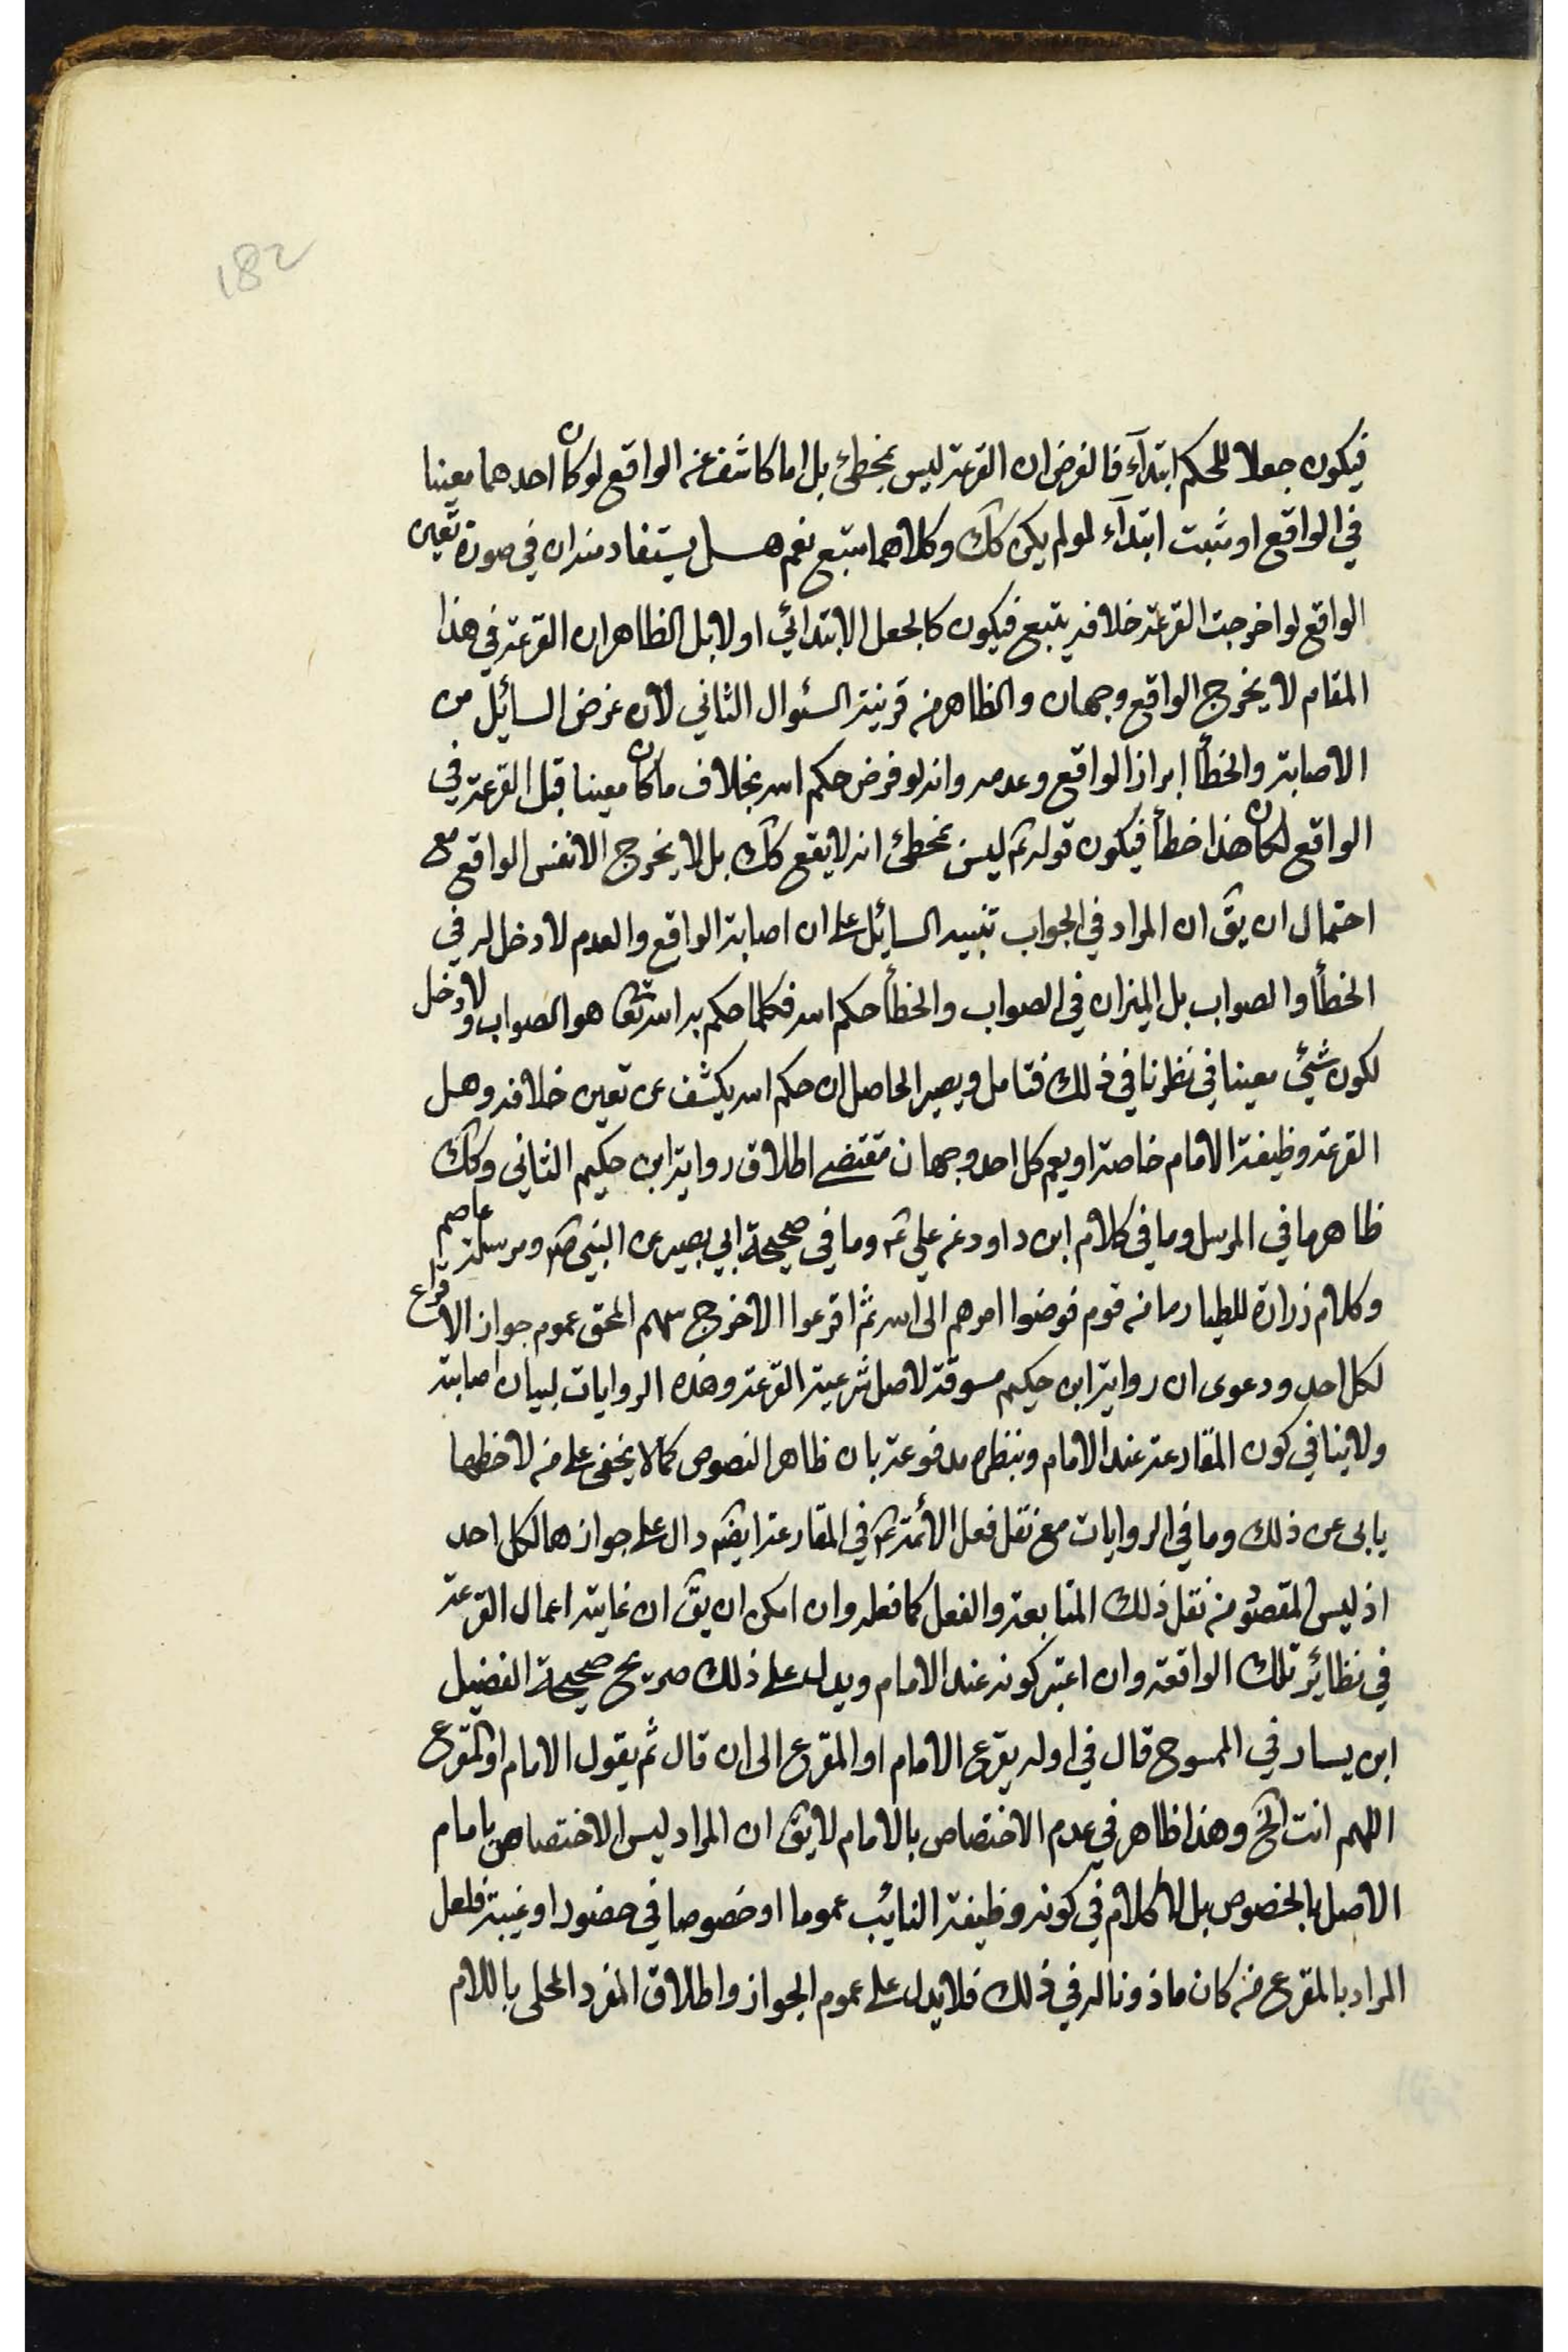 182
فيكون جعلا للحكم ابتدآء فالغرض ان القرعة ليس بمخطئ بل اما كاشف عن الواقع لو كان احدهما معينا
في الواقع او مثبت ابتدآء لو لم يكن كك وكلاهما متبع نعم هل يستفاد منه ان في صورة تعين
الواقع لو اخرجت القرعة خلافه يتبع فيكون كالجعل الابتدائي اولا بل الظاهر ان القرعة في هذا
المقام لا يخرج الواقع وجهان والظاهر من قرينة السئوال الثاني لان غرض السائل من
الاصابة والخطأ ابراز الواقع وعدمه وانه لو فرض حكم الله بخلاف ما كان معينا قبل القرعة في
الواقع لكان هذا خطأ فيكون قوله ع ليس بمخطئ انه لا يقع كك بل لا يخرج الا نفس الواقع مع
احتمال ان يق ان المراد في الجواب تنبيه السائل على ان اصابة الواقع والعدم لا دخل له في
الخطأ والصواب بل الميزان في الصواب والخطأ حكم الله فكلما حكم به الله تعا هو الصواب ولا دخل
لكون شيئ معينا في نظرنا في ذلك فتامل ويصير الحاصل ان حكم الله يكشف عن تعين خلافه وهل
القرعة وظيفة الامام خاصة او يعم كل احد وجهان مقتضى اطلاق رواية ابن حكيم الثاني وكك
ظاهر ما في المرسل وما في كلام ابن داود عن علي ع وما في صحيحة ابي بصير عن النبي ص ومرسلة عاصم
وكلام زرارة للطيار ما من قوم فوضوا امرهم الى الله ثم اقرعوا الا خرج سهم المحق عموم جواز الاقراع
لكل احد ودعوى ان رواية ابن حكيم مسوقة لاصل شرعية القرعة وهذه الروايات لبيان اصابته
ولا ينافي كون المقارعة عند الامام وبنظره مدفوعة بان ظاهر النصوص كما لا يخفى على من لاحظها
يابى عن ذلك وما في الروايات مع نقل فعل الأئمة ع في المقارعة ايضا دال على جوازها لكل احد
اذ ليس المقصود من نقل ذلك المتابعة والفعل كما فعله وان امكن ان يق ان غايته اعمال القرعة
في نظائر تلك الواقعة وان اعتبر كونه عند الامام ويدل على ذلك صريح صحيحة الفضيل
ابن يسار في الممسوح قال في اوله يقرع الامام او المقرع الى ان قال ثم يقول الامام او المقرع
اللهم انت الخ وهذا ظاهر في عدم الاختصاص بالامام لا يق ان المراد ليس الاختصاص بامام
الاصل بالخصوص بل لا كلام في كونه وظيفة النائب عموما او خصوصا في حضور او غيبة فلعل
المراد بالمقرع من كان ماذونا له في ذلك فلا يدل على عموم الجواز واطلاق المفرد المحلى باللام